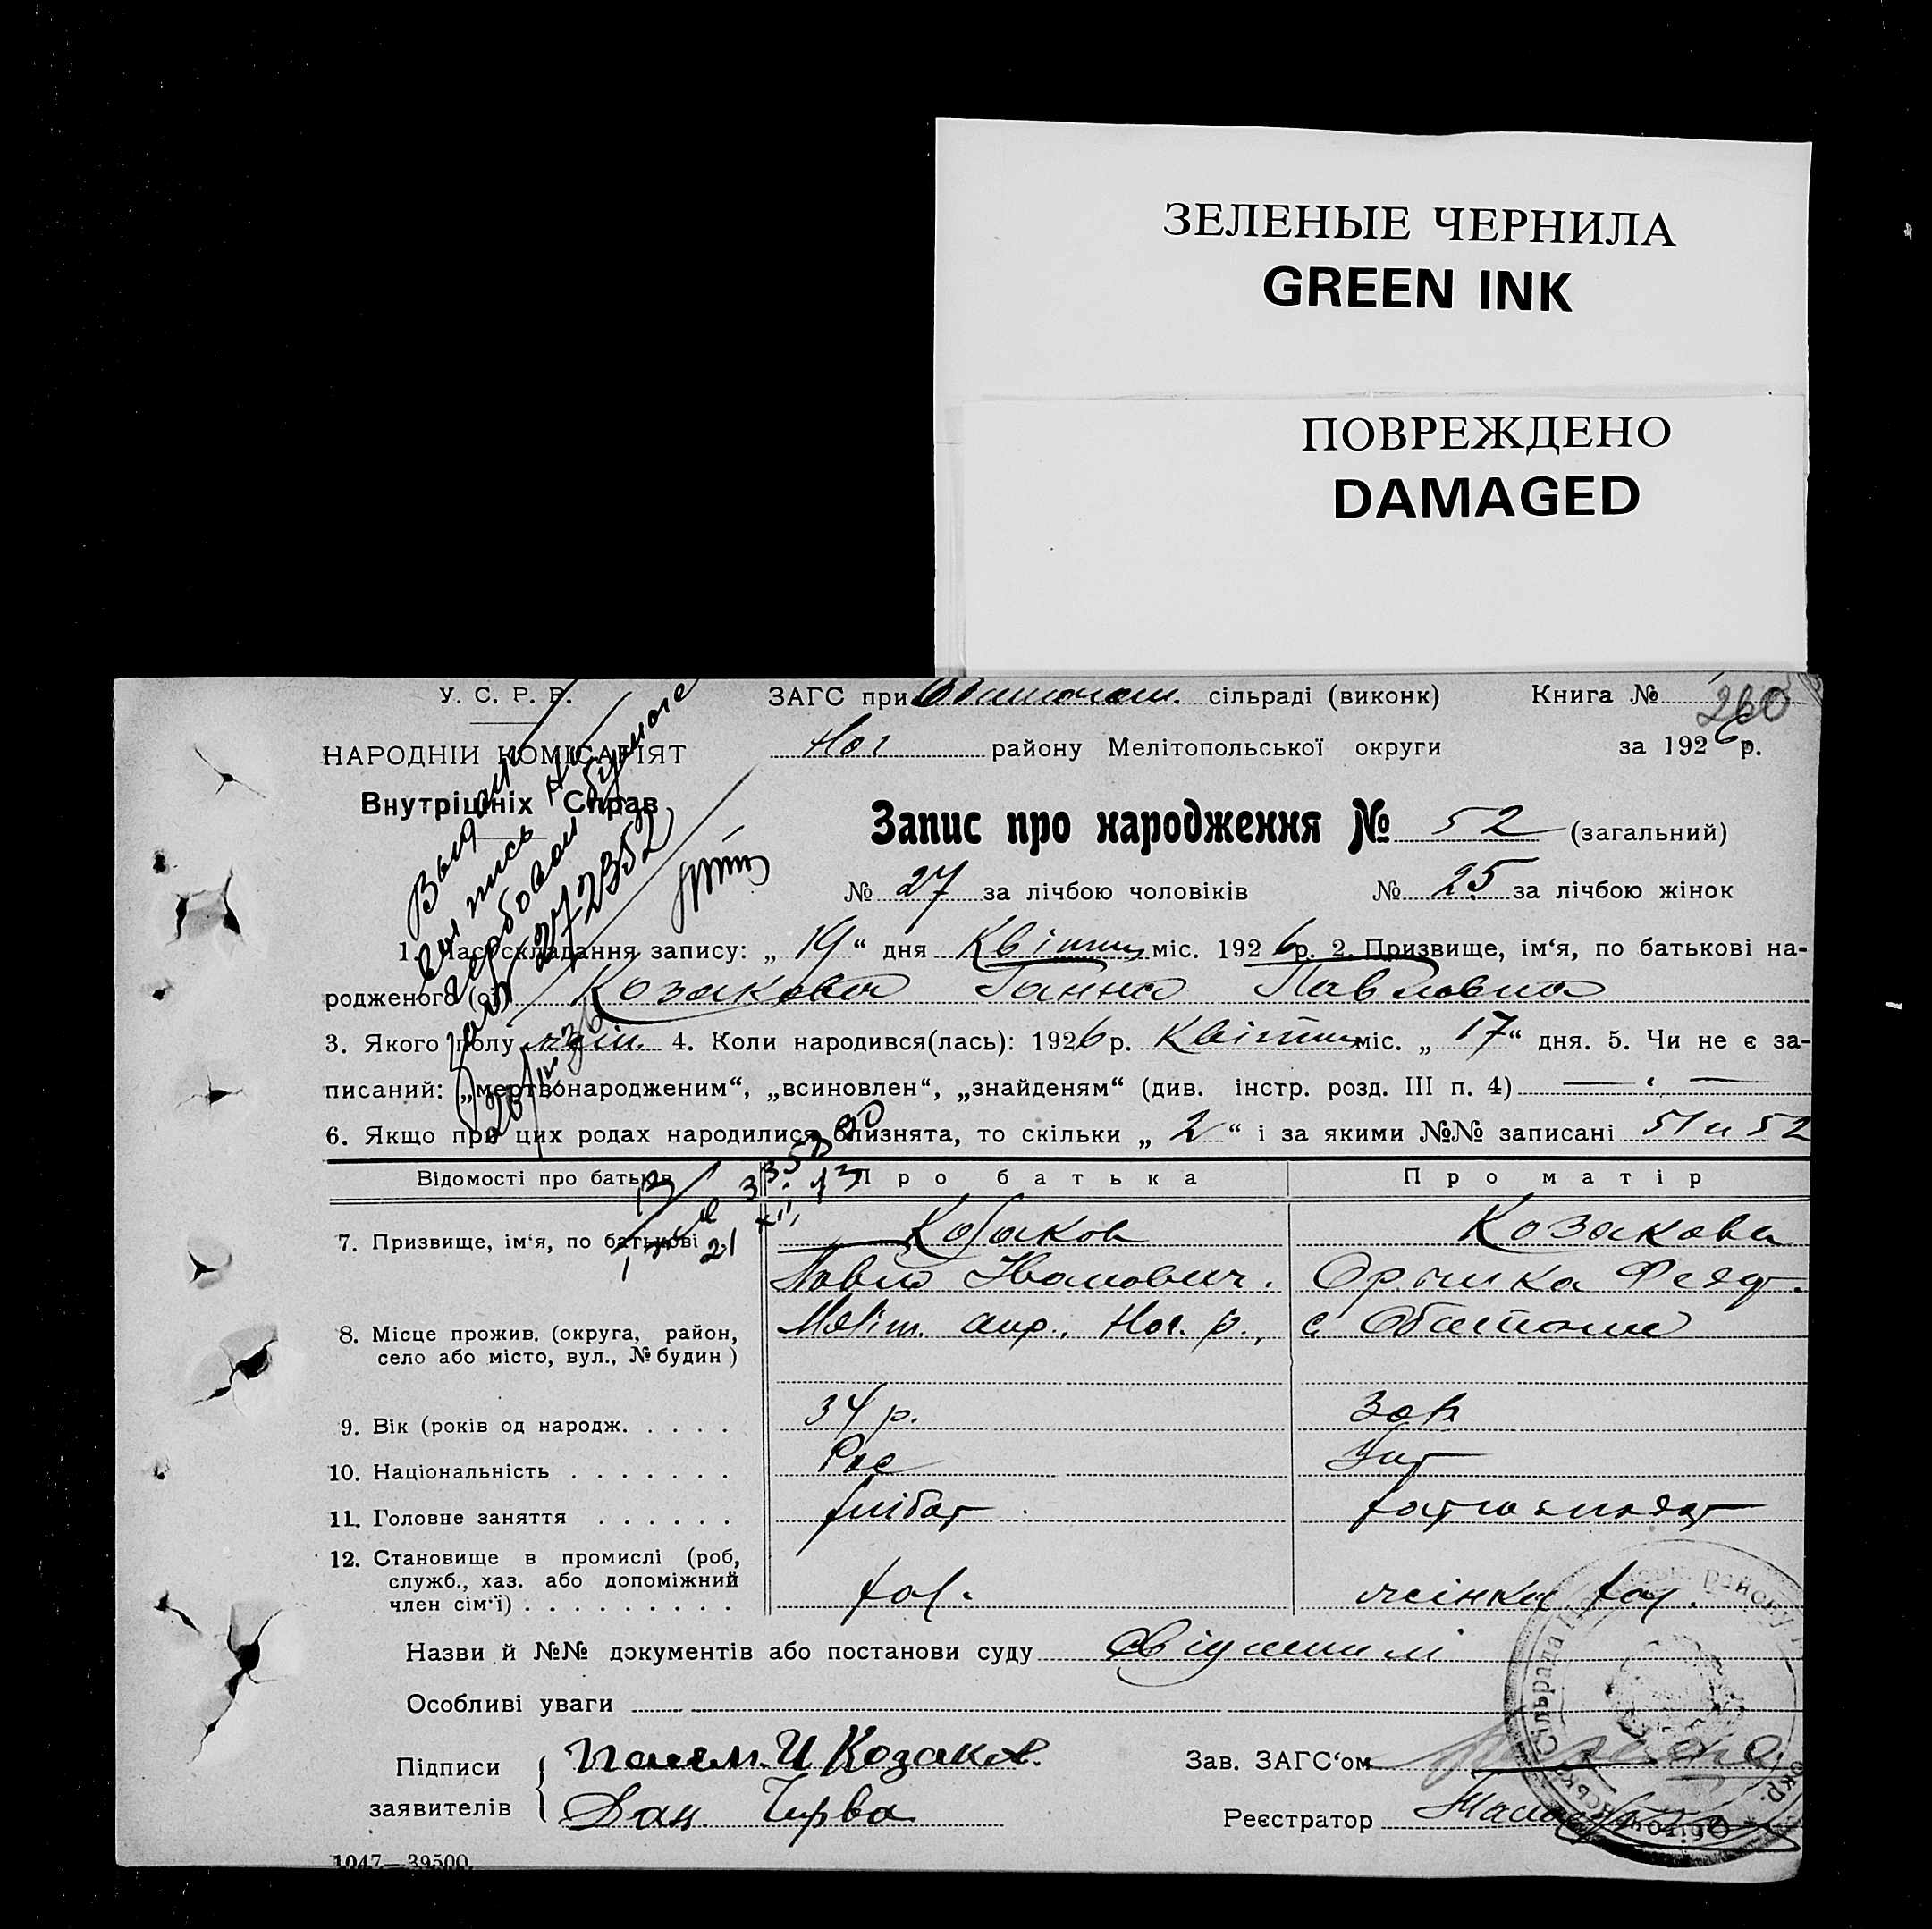 ЗЕЛЕНЫЕ ЧЕРНИЛА
GREEN INK
ПОВРЕЖДЕНО
DAMAGED
У. С. Р. Р. ЗАГС при сільраді (виконк) Книга № 260
НАРОДНІЙ КОМІСАРІЯТ Ног району Мелітопольської округи за 1926 р.
Внутрішніх Справ
Запис про народження № 52 (загальний)
№ 27 за лічбою чоловіків № 25 за лічбою жінок
1. Час складання запису: „ 19 “ дня Квітн міс. 1926 р. 2. Призвище, ім‘я, по батькові на-
родженого (ої) Козакова Ганна Павловна
3. Якого полу жін. 4. Коли народився(лась): 1926 р. Квітн міс. „ 17 “ дня. 5. Чи не є за-
писаний: „мертвонародженим“, „всиновлен“, „знайденям“ (див. інстр. розд. III п. 4)
6. Якщо при цих родах народилися близнята, то скільки „ 2 “ і за якими №№ записані 51 и 52
Відомості про батьків Про батька Про матір
7. Призвище, ім‘я, по батькові Козаков Козакова
Павло Іванович. Оришка Федот.
8. Місце прожив. (округа, район, Меліт. окр., Ног. р., с. Обиточне
село або місто, вул., № будин )
9. Вік (років од народж. . . . . 34 р. 30 р.
10. Національність . . . . . . . Рос Укр
11. Головне заняття . . . . . . хлібор
12. Становище в промислі (роб,
служб., хаз. або допоміжний
член сім‘ї) . . . . . . . . . хаз. жінка хаз.
Назви й №№ документів або постанови суду
Особливі уваги
Підписи И Козаков. Зав. ЗАГС‘ом
заявителів Дан. Чирва Реєстратор
1047—39500.